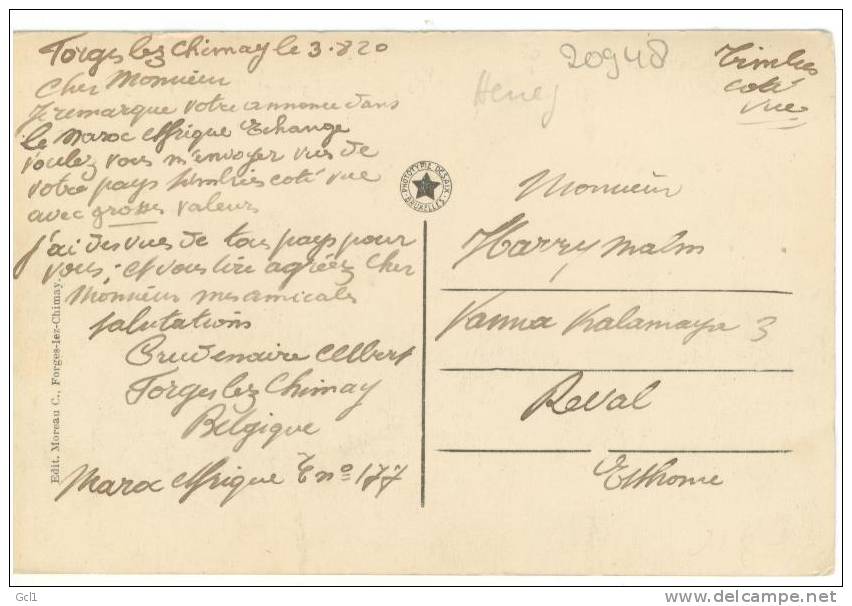 Forges lez Chimay le 3.8 20
Cher Monsieur
Je remarque votre annonce dans
le Maroc Afrique Echange
voulez vous m'envoyer vues de
votre pays timbries coté vue
avec grosses valeurs
j'ai des vues de tous pays pour
vous; et vous lire agréez Cher
Monsieur mes amicales
salutations
Albert
Forges lez Chimay
Belgique
Maroc Afrique E no 177
20948
Timbres
coté
vue
PHOTOTYPIE DESAIX
BRUXELLES
Monsieur
Harry Malm
Vanna Kalamaya 3
Reval
Esthonie
Edit. Moreau C., Forges-lez-Chimay.
Gcl1
delcampe.net